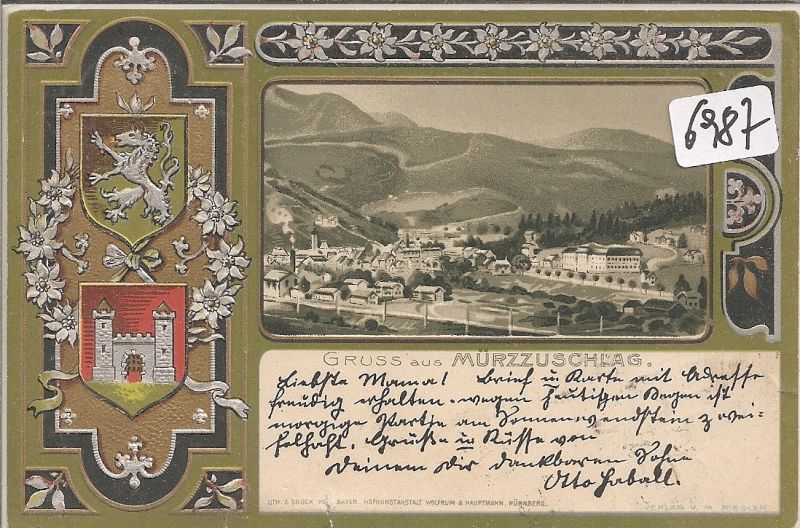 6987
GRUSS AUS MÜRZZUSCHLAG.
Liebste Mama! Brief u Karte mit Adresse
freudig erhalten. wegen heutigen Regen ist
morgige Partie am Sonnenwendstein zwei-
felhaft. Grüße u Küsse von
Deinem Dir dankbaren Sohne
Otto
LITH. & DRUCK BAYER. HOFKUNSTANSTALT WOLFRUM & HAUPTMANN, NÜRNBERG.
VERLAG V. M. RIEGLER